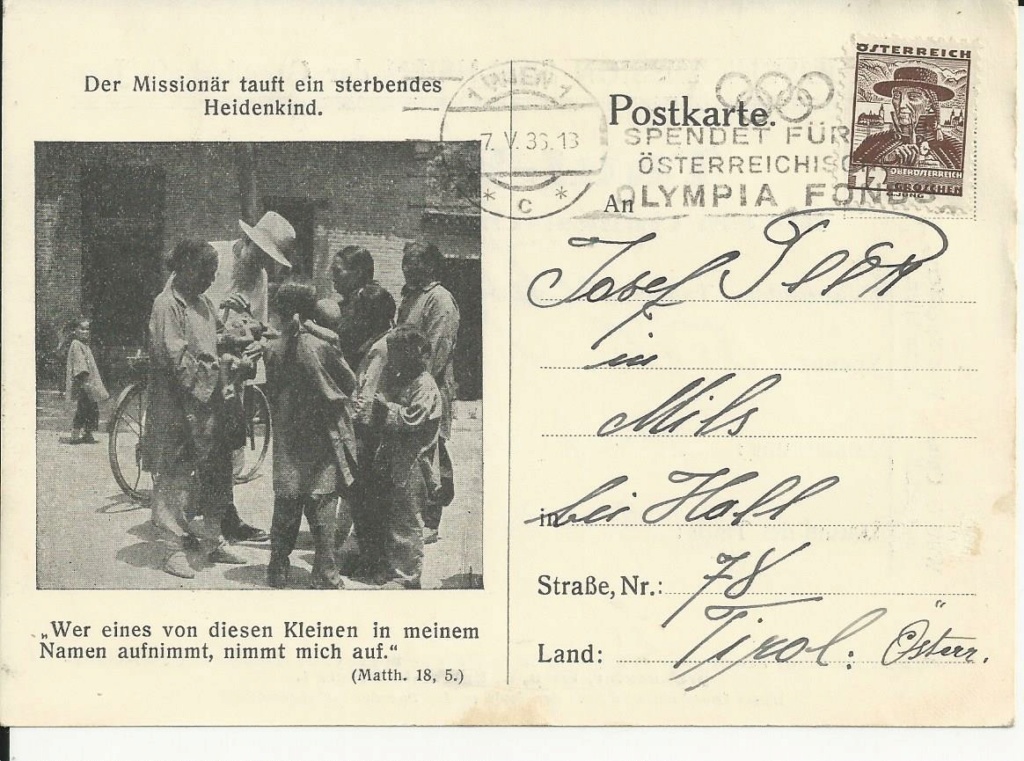 Der Missionär tauft ein sterbendes
Heidenkind.
„Wer eines von diesen Kleinen in meinem
Namen aufnimmt, nimmt mich auf.“
(Matth. 18, 5.)
1 WIEN 1
7. V. 36.18
* C *
Postkarte.
SPENDET FÜR
ÖSTERREICHISC
OLYMPIA FONDS
ÖSTERREICH
OBERÖSTERREICH
12 GROSCHEN
An
Josef
in
Mils
in bei Hall
Straße, Nr.: 78
Land: Tirol. Österr.